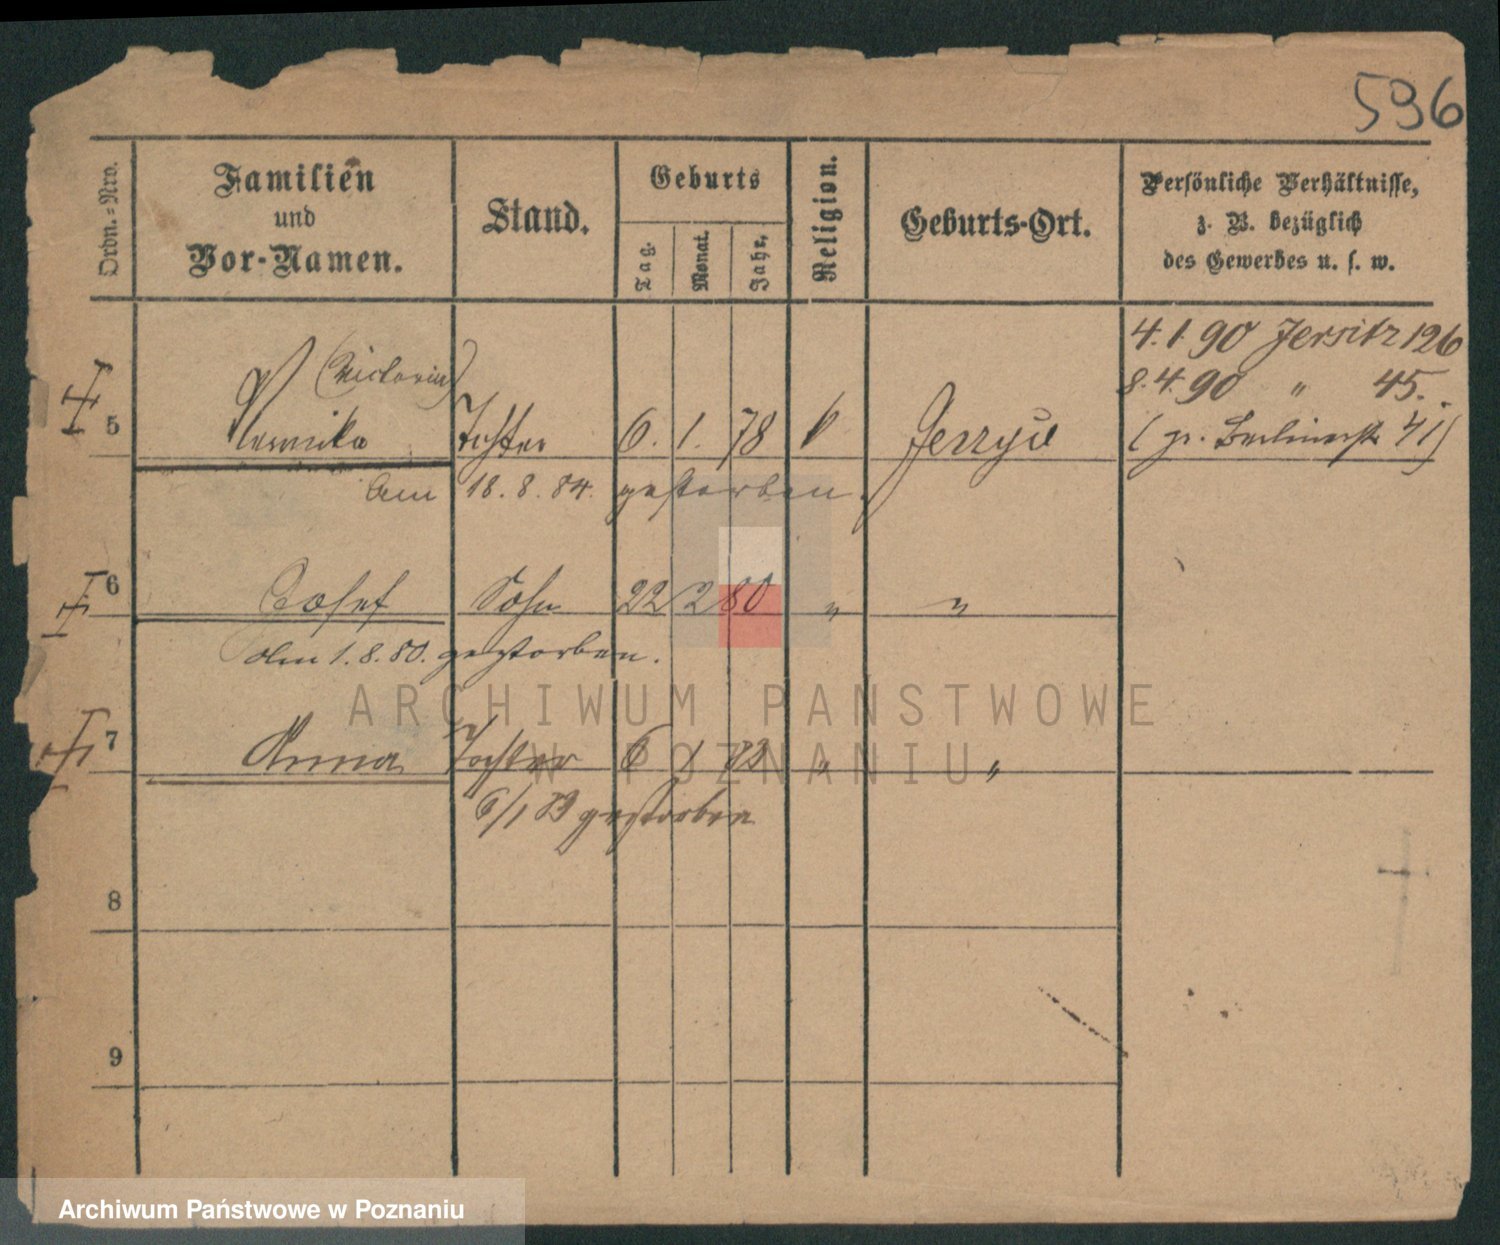 596
Ordn.=Nro.
Familien
und
Vor-Namen.
Stand.
Geburts
Tag.
Monat.
Jahr.
Religion.
Geburts-Ort.
Persönliche Verhältnisse,
z. B. bezüglich
des Gewerbes u. s. w.
4.1.90 Jersitz 126
8.4.90 " 45.
(Victoria)
5 Tochter 6. 1. 78 Jerzyce (gr. Berlinerstr 41)
Am 18. 8. 84. gestorben.
6 Josef Sohn 22 2 80 " "
Am 1. 8. 80. gestorben.
7 Anna Tochter 6 1 82 " "
6/1 gestorben
8
9
ARCHIWUM PAŃSTWOWE
W POZNANIU
Archiwum Państwowe w Poznaniu